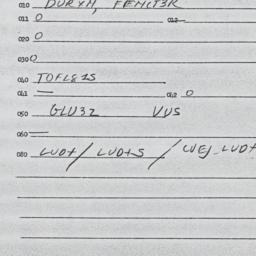 010 DURYM, FEMCT3R
011 0 012 —
020 0
030 0
040 TOFLS1S
041 — 042 0
050 GLU32 VUS
060 =
080 LUDT / LUDTS / WEJ LUDT